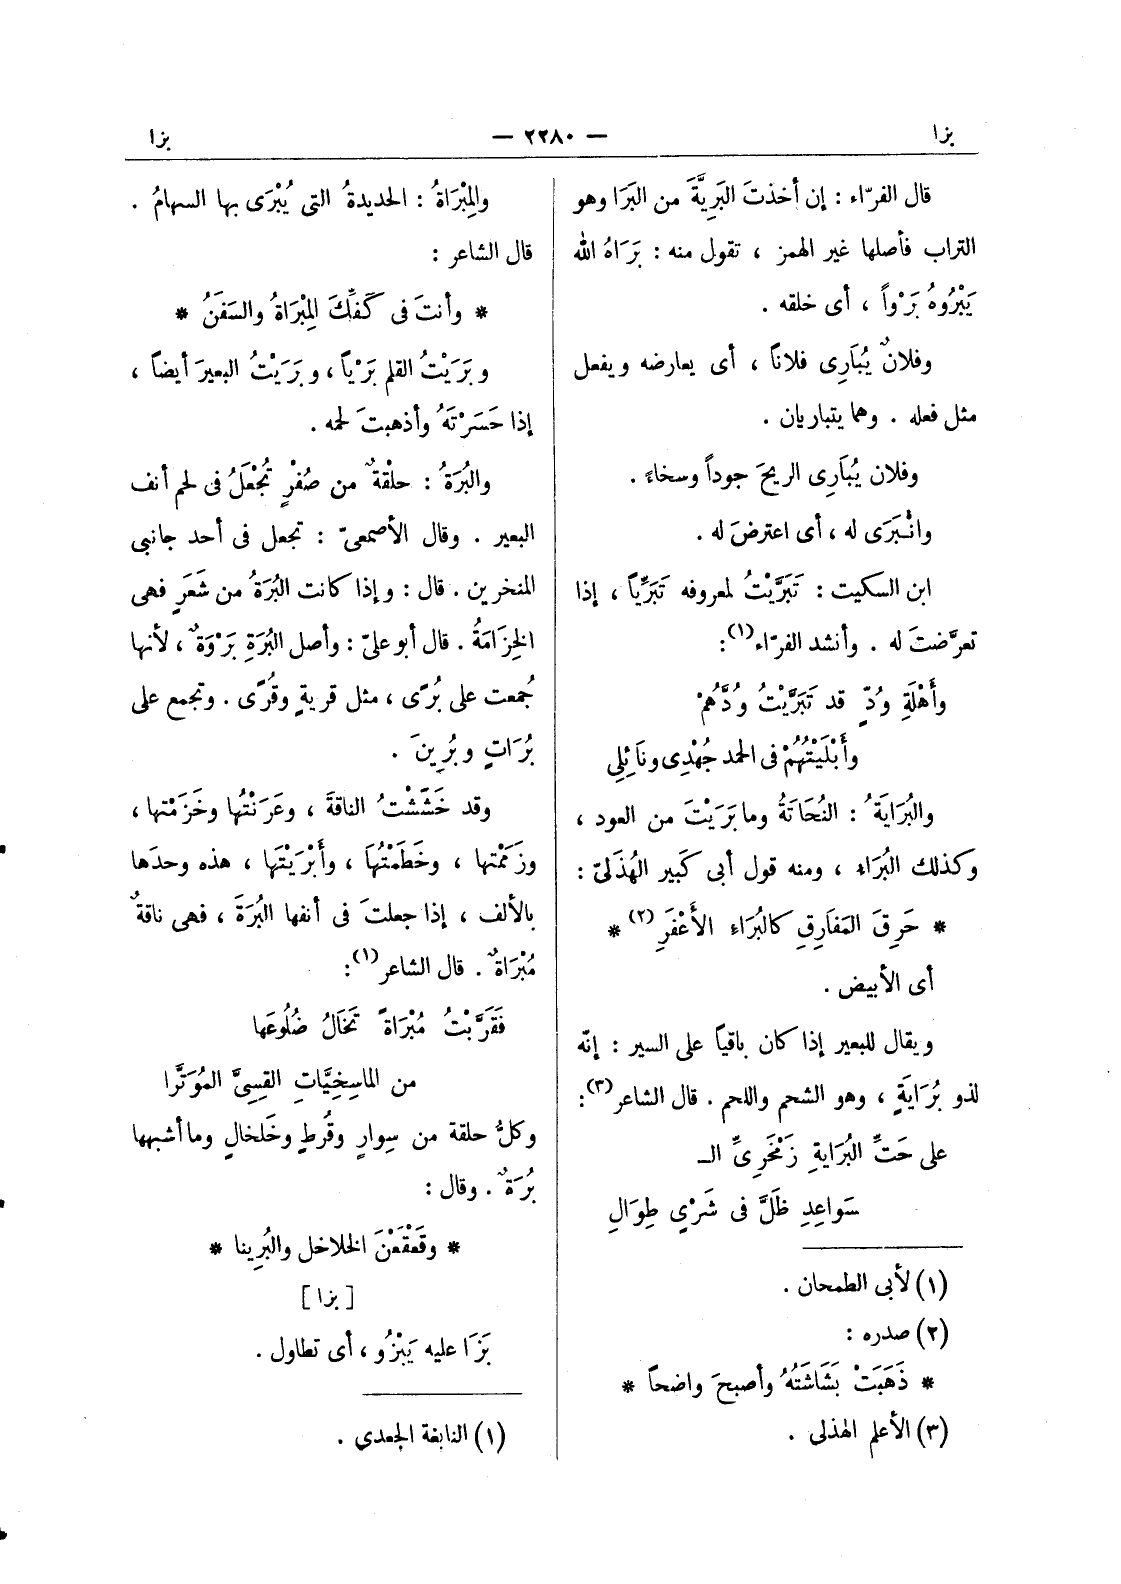 بزا
— ٢٢٨٠ —
بزا
قال الفرّاء : إن أخذتَ البَرِيَّةَ من البَرَا وهو
التراب فأصلها غير الهمز ، تقول منه : بَرَاهُ الله
يَبْرُوهُ بَرْواً ، أى خلقه .
وفلانٌ يُبَارِى فلاناً ، أى يعارضه ويفعل
مثل فعله . وهما يتباريان .
وفلان يُبَارِى الريحَ جوداً وسخاءً .
وانْبَرَى له ، أى اعترضَ له .
ابن السكيت : تَبَرَّيْتُ لمعروفه تَبَرِّياً ، إذا
تعرَّضتَ له . وأنشد الفرّاء (١) :
وأَهْلَةِ وُدٍّ قد تَبَرَّيْتُ وُدَّهُمْ
وأَبْلَيْتُهُمْ فى الحمد جُهْدِى ونَائِلِى
والبُرَايَةُ : النُحَاتَةُ وما بَرَيْتَ من العود ،
وكذلك البُرَاء ، ومنه قول أبى كَبير الهُذَلىّ :
* حَرِقَ المَفَارِقِ كالبُرَاءِ الأَعْفَرِ (٢) *
أى الأبيض .
ويقال للبعير إذا كان باقياً على السير : إنّه
لذو بُرَايَةٍ ، وهو الشحم واللحم . قال الشاعر (٣) :
على حَتِّ البُرَايةِ زَمْخَرِىِّ الـ
سَواعِدِ ظَلَّ فى شَرْىٍ طِوَالِ
(١) لأبى الطمحان .
(٢) صدره :
* ذَهَبَتْ بَشَاشَتُهُ وأصبحَ واضحاً *
(٣) الأعلم الهذلى .
والمِبْرَاةُ : الحديدةُ التى يُبْرَى بها السهامُ .
قال الشاعر :
* وأنتَ فى كَفِّكَ المِبْرَاةُ والسَفَنُ *
وبَرَيْتُ القلم بَرْياً ، وبَرَيْتُ البعيرَ أيضاً ،
إذا حَسَرْتَهُ وأذهبتَ لحمه .
والبُرَةُ : حلقةٌ من صُفْرٍ تُجْعَلُ فى لحم أنف
البعير . وقال الأصمعىّ : تجعل فى أحد جانبى
المنخرين . قال : وإذا كانت البُرَةُ من شَعَرٍ فهى
الخِزَامَةُ . قال أبو علىّ : وأصل البُرَةِ بَرْوَةٌ ، لأنها
جُمعت على بُرًى ، مثل قريةٍ وقُرًى . وتجمع على
بُرَاتٍ وبُرِينَ .
وقد خَشَشْتُ الناقةَ ، وعَرَنْتُها وخَزَمْتها ،
وزَمَمْتها ، وخَطَمْتُهَا ، وأَبْرَيْتَها ، هذه وحدَها
بالألف ، إذا جعلتَ فى أنفها البُرَةَ ، فهى ناقةٌ
مُبْرَاةٌ . قال الشاعر (١) :
فَقَرَّبْتُ مُبْرَاةً تَخَالُ ضُلُوعَها
من الماسِخِيَّاتِ القِسِىَّ المُوَتَّرا
وكلُّ حلقة من سِوارٍ وقُرطٍ وخَلخالٍ وما أشبهها
بُرَةٌ . وقال :
* وقَعْقَعْنَ الخلاخل والبُرِينا *
[ بزا ]
بَزَا عليه يَبْزُو ، أى تطاول .
(١) النابغة الجعدي .